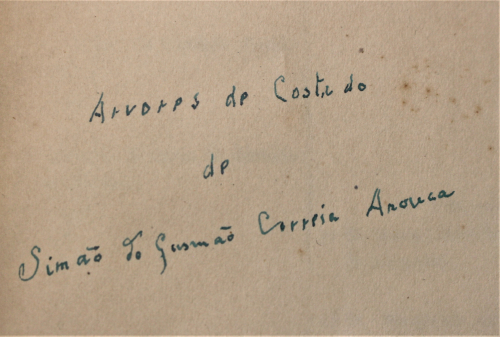 Arvores de Costado
de
Simão de Gusmão Correia Arouca